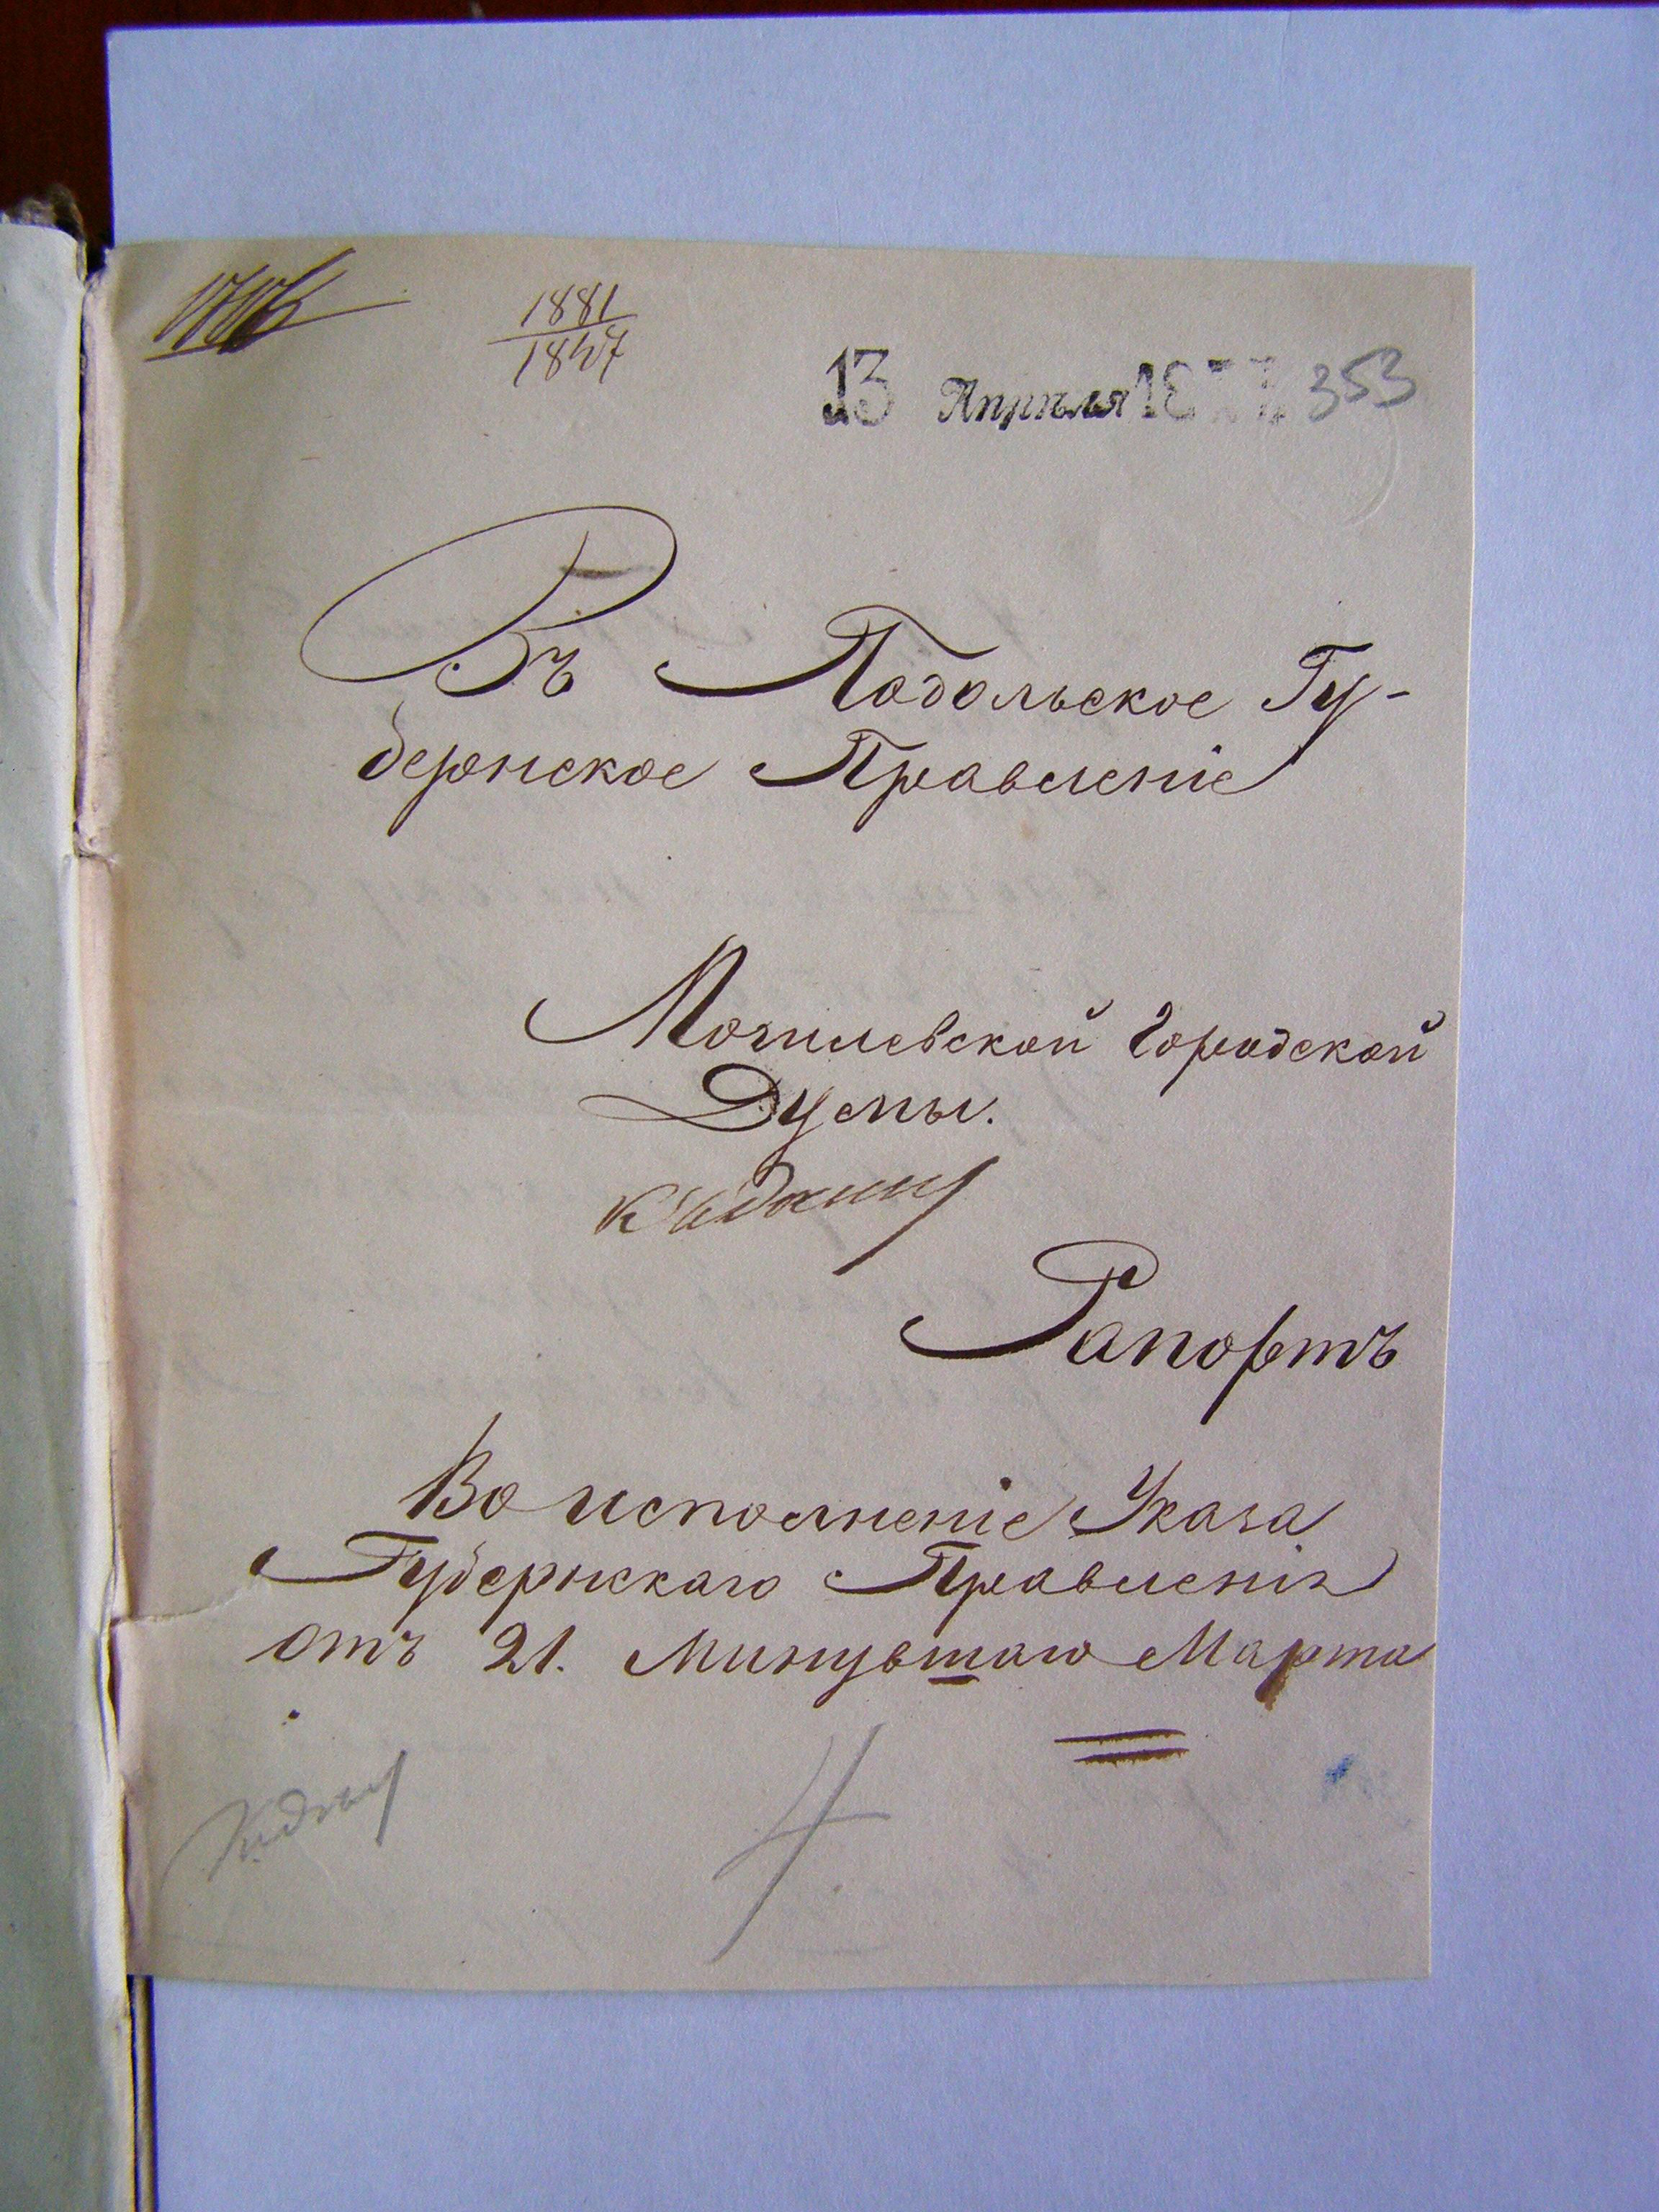 1881
1847
13 Апрѣля 353
Въ Подольское Гу-
бернское Правленіе
Могилевской Городской
Думы.
Рапортъ
Во исполненіе Указа
Губернскаго Правленія
отъ 21. Минувшаго Марта